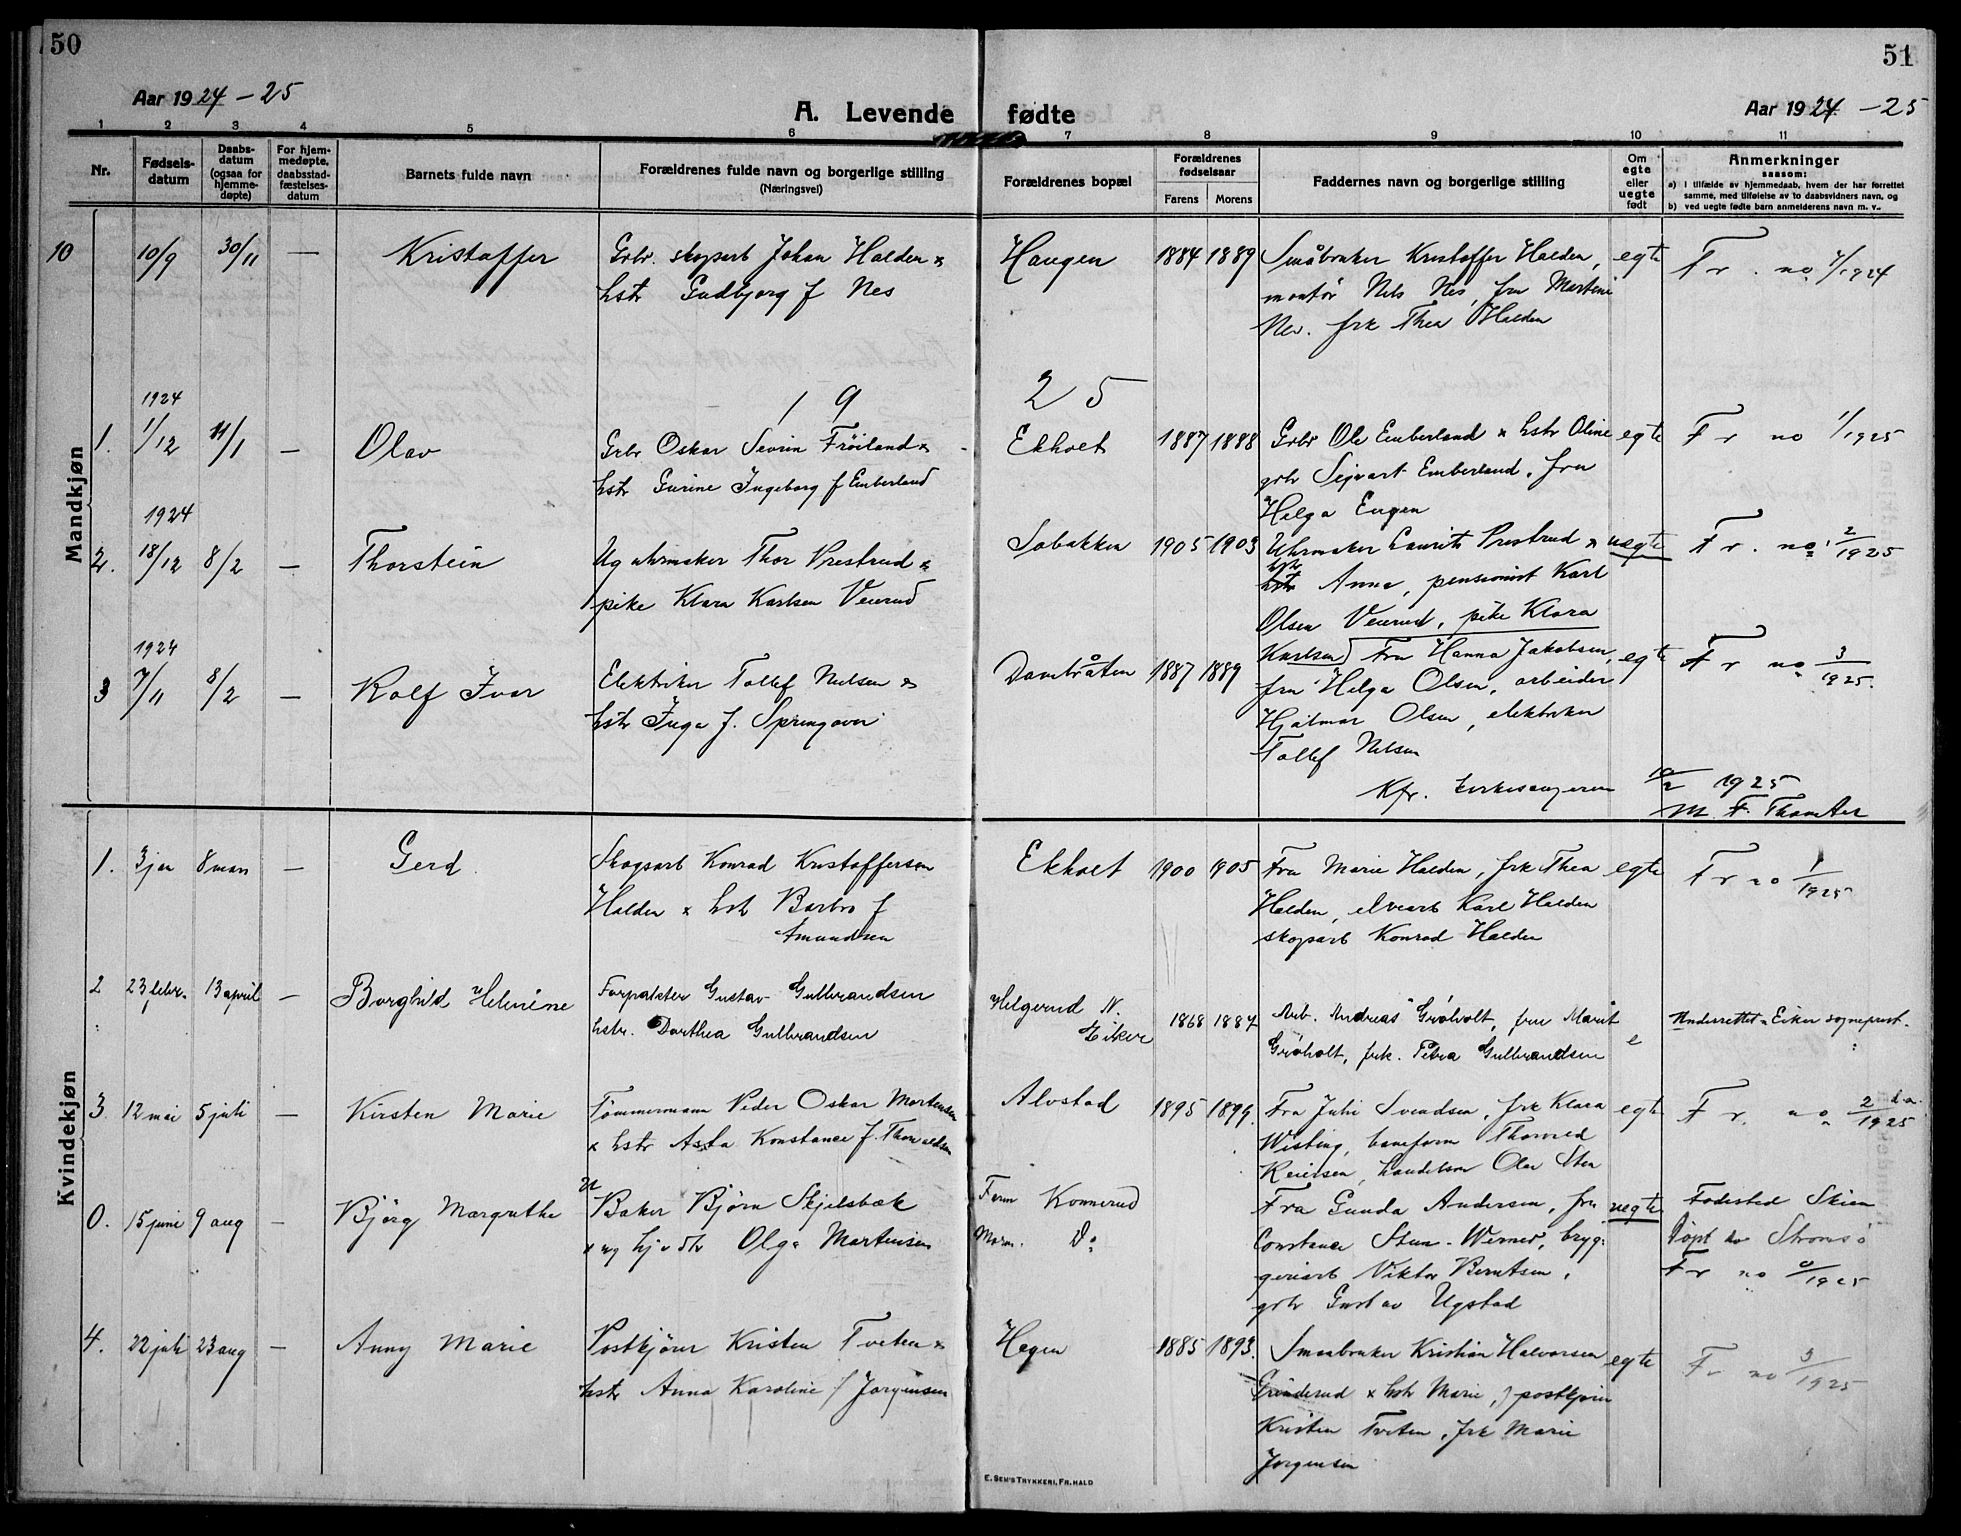 50
51
Aar 1924 - 25
A. Levende fødte
Aar 1924 - 25
1 2 3 4 5 6 7 8 9 10 11
Nr.
Fødsels-
datum
Daabs-
datum
(ogsaa for
hjemme-
døpte)
For hjem-
medøpte,
daabsstad-
fæstelses-
datum
Barnets fulde navn
Forældrenes fulde navn og borgerlige stilling
(Næringsvei)
Forældrenes bopæl
Forældrenes
fødselsaar
Farens Morens
Faddernes navn og borgerlige stilling
Om
egte
eller
uegte
født
Anmerkninger
saasom:
a) i tilfælde av hjemmedaab, hvem der har forrettet
samme, med tilføielse av to daabsvidners navn, og
b) ved uegte fødte barn anmelderens navn m. v.
Mandkjøn
10 10/9 30/11 — Kristoffer
Grbr. skogsarb Johan Halden x
hstr Gudbjorg f Nes
Haugen 1884 1889
Småbruker Kristoffer Halden,
montør Nels Nes, fru Martine
Nes. frk Thea Halden
egte
Fr. no 7/1924
19 25
1. 1924
1/12 11/1 — Olav
Grbr Oskar Severin Frøiland x
hstr Gurine Ingeborg f Emberland
Ekholt 1887 1888
Grbr Ole Emberland x hstr Oline
grbr Sigvart Emberland, fru
Helga Engen
egte
Fr no 1/1925
2. 1924
18/12 8/2 — Thorstein
Ug uhrmaker Thor Prestrud x
pike Klara Karlsen Veierud
Sobakken 1905 1903
Uhrmaker Laurits Prestrud x
hstr Anna, pensionist Karl
Olsen Veierud, pike Klara
Karlsen
uegte
Fr. no. 2/1925
3 1924
7/11 8/2 — Rolf Ivar
Elektriker Tollef Nilsen x
hstr Inga f. Springover
Dambråten 1887 1889
Fru Hanna Jakobsen,
fru Helga Olsen, arbeider
Hjalmar Olsen, elektriker
Tollef Nilsen
egte
Fr no 3/1925.
Kfr. kirkesangeren 10/2 1925
M. F. Thomter
Kvindekjøn
1. 3 jan 8 mars — Gerd
Skogsarb Konrad Kristoffersen
Halden x hstr Barbro f
Amundsen
Ekholt 1900 1905
Fru Marie Halden, frk Thea
Halden, elvearb Karl Halden
skogsarb Konrad Halden
egte
Fr no 1/1925
2 23 febr. 13 april — Borghild Helmine
Forpakter Gustav Gulbrandsen
hstr. Dorthea Gulbrandsen
Helgerud N.
Eiker 1868 1887
Arb. Andreas Grøholt, fru Marit
Grøholt, frk. Petra Gulbrandsen
e
Underrettet Eiker sogneprest.
3. 12 mai 5 juli — Kirsten Marie
Tømmermann Peder Oskar Mortensen
x hstr Asta Konstance f. Thorvaldsen
Alvstad 1895 1899.
Fru Julie Svendsen, frk Klara
Wisting, baneform Thorvald
Reiersen, handelsm Olav Sten
egte
Fr. no 2/1925
0. 15 juni 9 aug — Bjørg Margrethe
U
Baker Bjørn Skjelsbæk
x ug hj v str Olga Martensen
Farm Konnerud
Moren. Do
Fra Gunda Andersen, fru
Constance Stun-Werner, bryg-
geriarb Viktor Berntsen,
grbr Gustav Ugstad
uegte
Fødested Skien
Døpt av Strømsø
Fr no 0/1925
4. 22 juli 23 aug — Anny Marie
Postkjører Kristen Tveten x
hstr Anna Karoline f Jørgensen
Hagen 1885 1893.
Smaabruker Kristian Halvorsen
Grinderud x hstr Marie, postkjører
Kristen Tveten, frk Marie
Jørgensen
egte
Fr no 3/1925
E. SEM'S TRYKKERI, FR.HALD